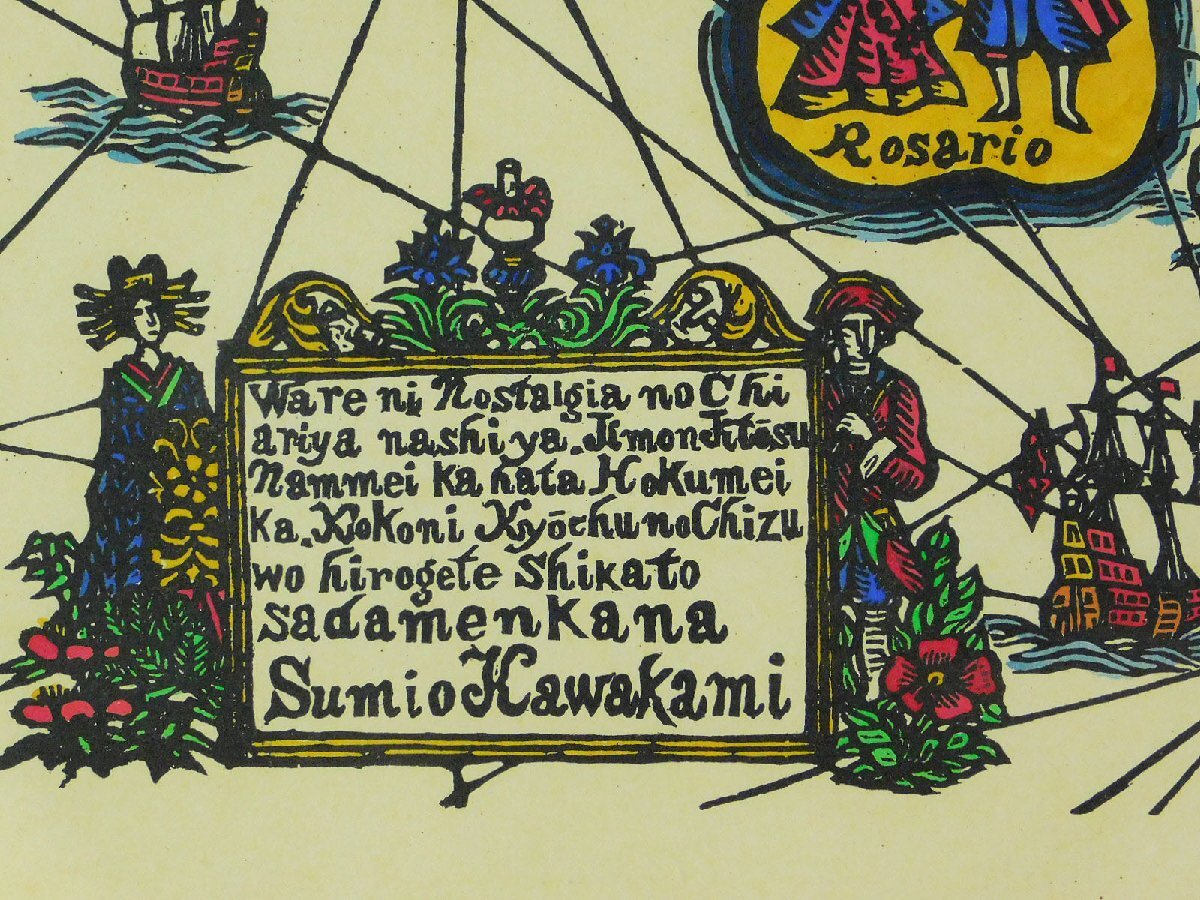 Rosario
Ware ni Nostalgia no Chi
ariya nashiya. Jimonchitōsu
Nammei ka hata Hokumei
ka. Kokoni Kyōchu no Chizu
wo hirogete Shikato
sadamenkana
Sumio Kawakami